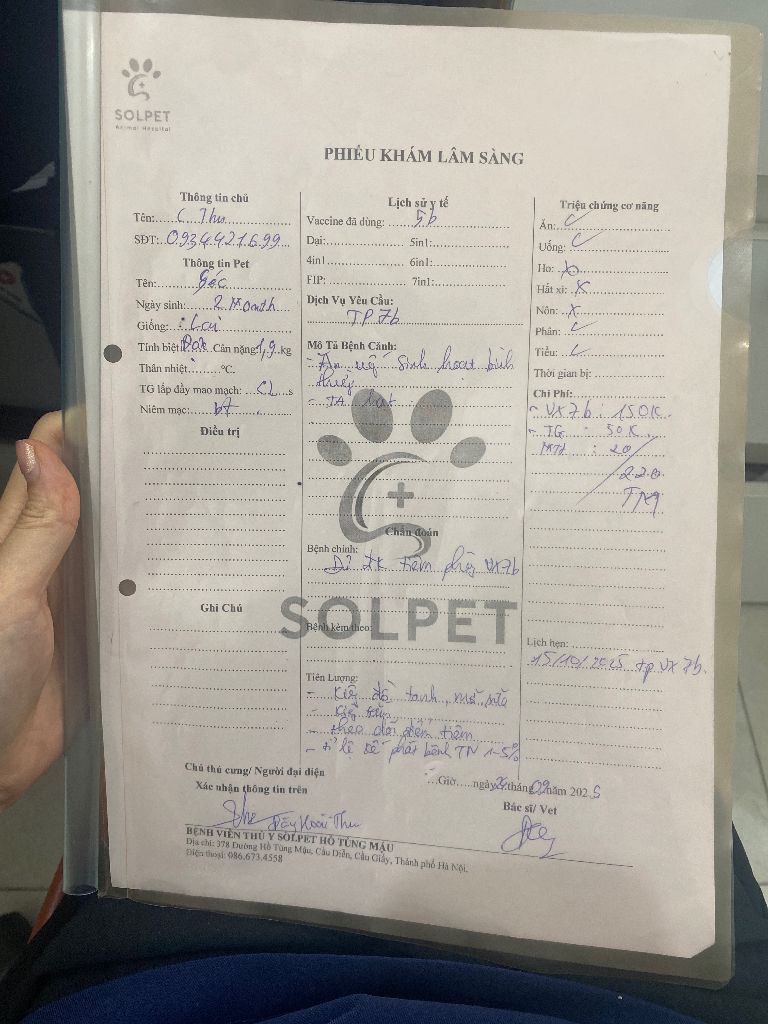 SOLPET
Animal Hospital
PHIẾU KHÁM LÂM SÀNG
Thông tin chủ
Tên: C Thu
SĐT: 0934.421.699
Thông tin Pet
Tên: Gấc
Ngày sinh: 2 Month
Giống: Lai
Tính biệt: Đực Cân nặng: 1,9 kg
Thân nhiệt: °C.
TG lấp đầy mao mạch: <2 s
Niêm mạc: bt
Điều trị
Ghi Chú
Lịch sử y tế
Vaccine đã dùng: 5b
Dại: 5in1:
4in1 6in1:
FIP: 7in1:
Dịch Vụ Yêu Cầu:
TP 7b
Mô Tả Bệnh Cảnh:
- Ăn uống sinh hoạt bình
thường
- TA hạt
Chẩn đoán
Bệnh chính:
Đủ ĐK tiêm phòng VX7b
SOLPET
Bệnh kèm theo:
Tiên Lượng:
- Kiêng đồ tanh, mỡ, sữa
- Kiêng tắm
- theo dõi điểm tiêm
- tỉ lệ kế phát bệnh TN 1-5%
Triệu chứng cơ năng
Ăn: ✓
Uống: ✓
Ho: x
Hắt xì: x
Nôn: x
Phân: ✓
Tiểu: ✓
Thời gian bị:
Chi Phí:
- VX7b : 150K
- TG : 50K
: 20
220
Lịch hẹn:
15/10/2025 tp VX 7b.
Chủ thú cưng/ Người đại diện
Xác nhận thông tin trên
Hoài Thu
...Giờ.....ngày 24 tháng 09 năm 2025
Bác sĩ/ Vet
BỆNH VIỆN THÚ Y SOLPET HỒ TÙNG MẬU
Địa chỉ: 378 Đường Hồ Tùng Mậu, Cầu Diễn, Cầu Giấy, Thành phố Hà Nội.
Điện thoại: 086.673.4558